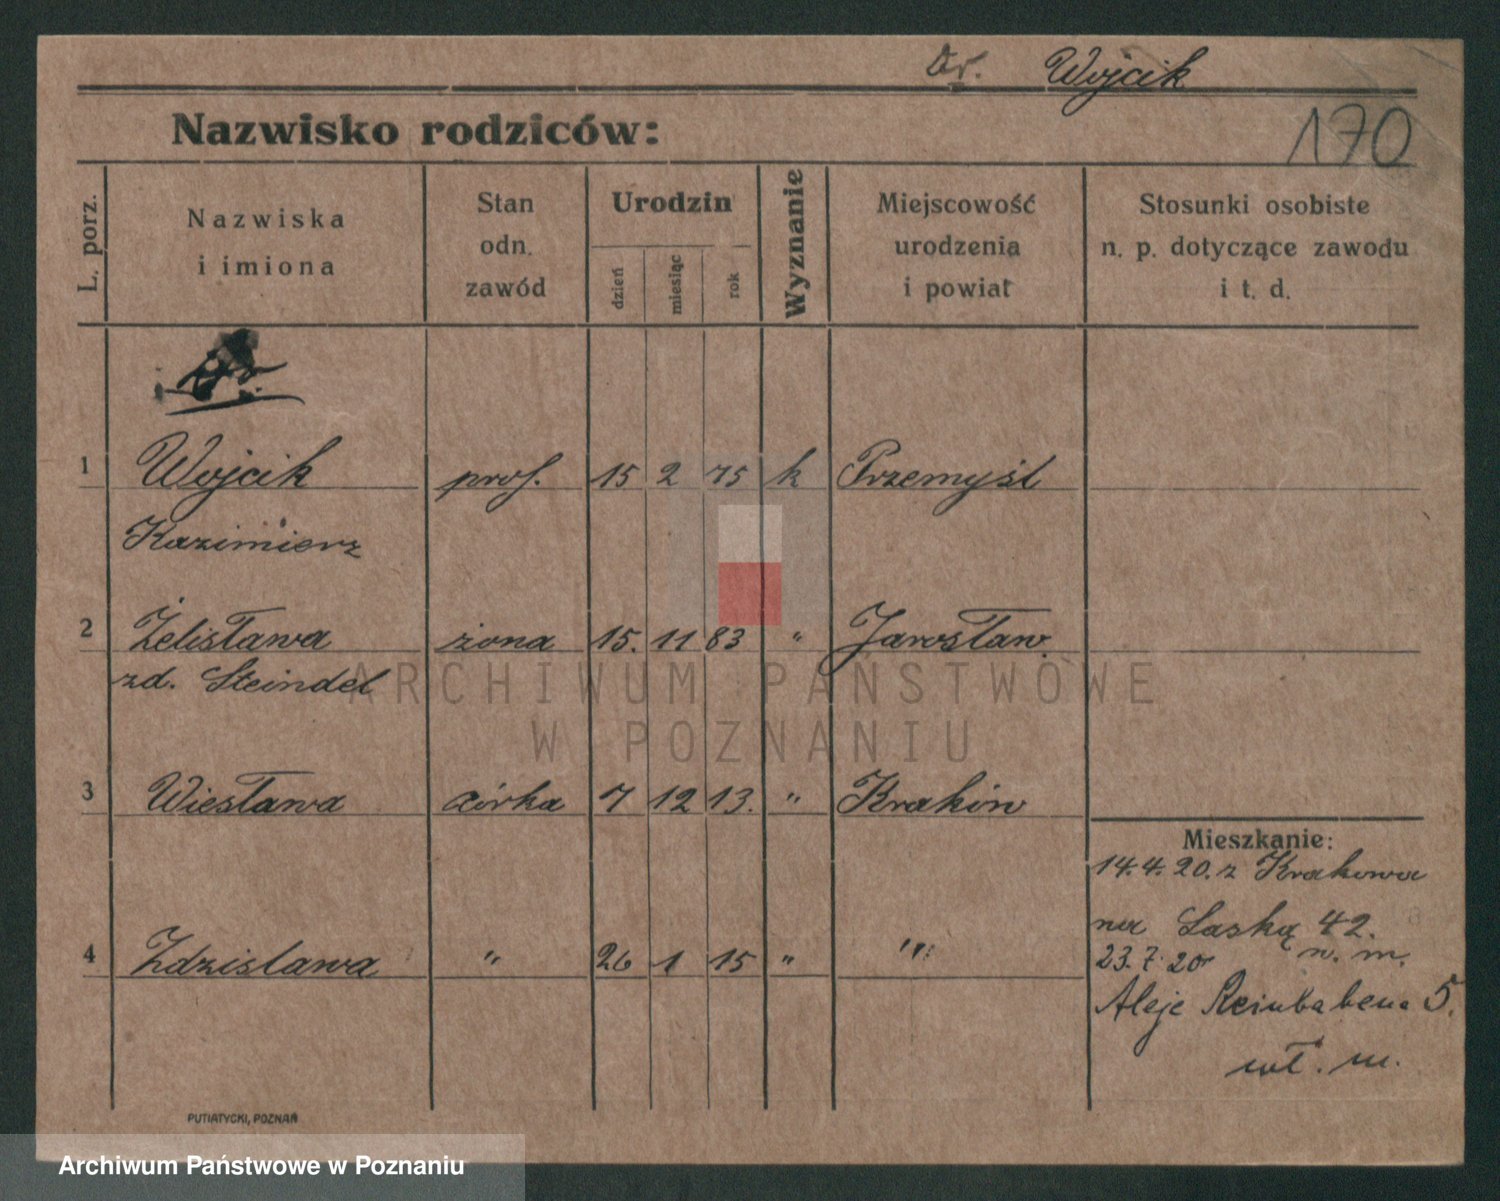 Dr. Wojcik
Nazwisko rodziców:
170
L. porz.
Nazwiska
i imiona
Stan
odn.
zawód
Urodzin
dzień
miesiąc
rok
Wyznanie
Miejscowość
urodzenia
i powiat
Stosunki osobiste
n. p. dotyczące zawodu
i t. d.
1 Wojcik prof. 15 2 75 k Przemyśl
Kazimierz
2 Żelisława żona 15. 11 83 " Jarosław.
zd. Steindel
3 Wiesława córka 7 12 13. " Kraków
4 Zdzislawa " 26 1 15 " "
Mieszkanie:
14.4.20. z Krakowa
na Łaską 42.
n. m.
23.7.20
Aleje Reinbabena 5.
wł. m.
PUTIATYCKI, POZNAŃ
ARCHIWUM PAŃSTWOWE
W POZNANIU
Archiwum Państwowe w Poznaniu